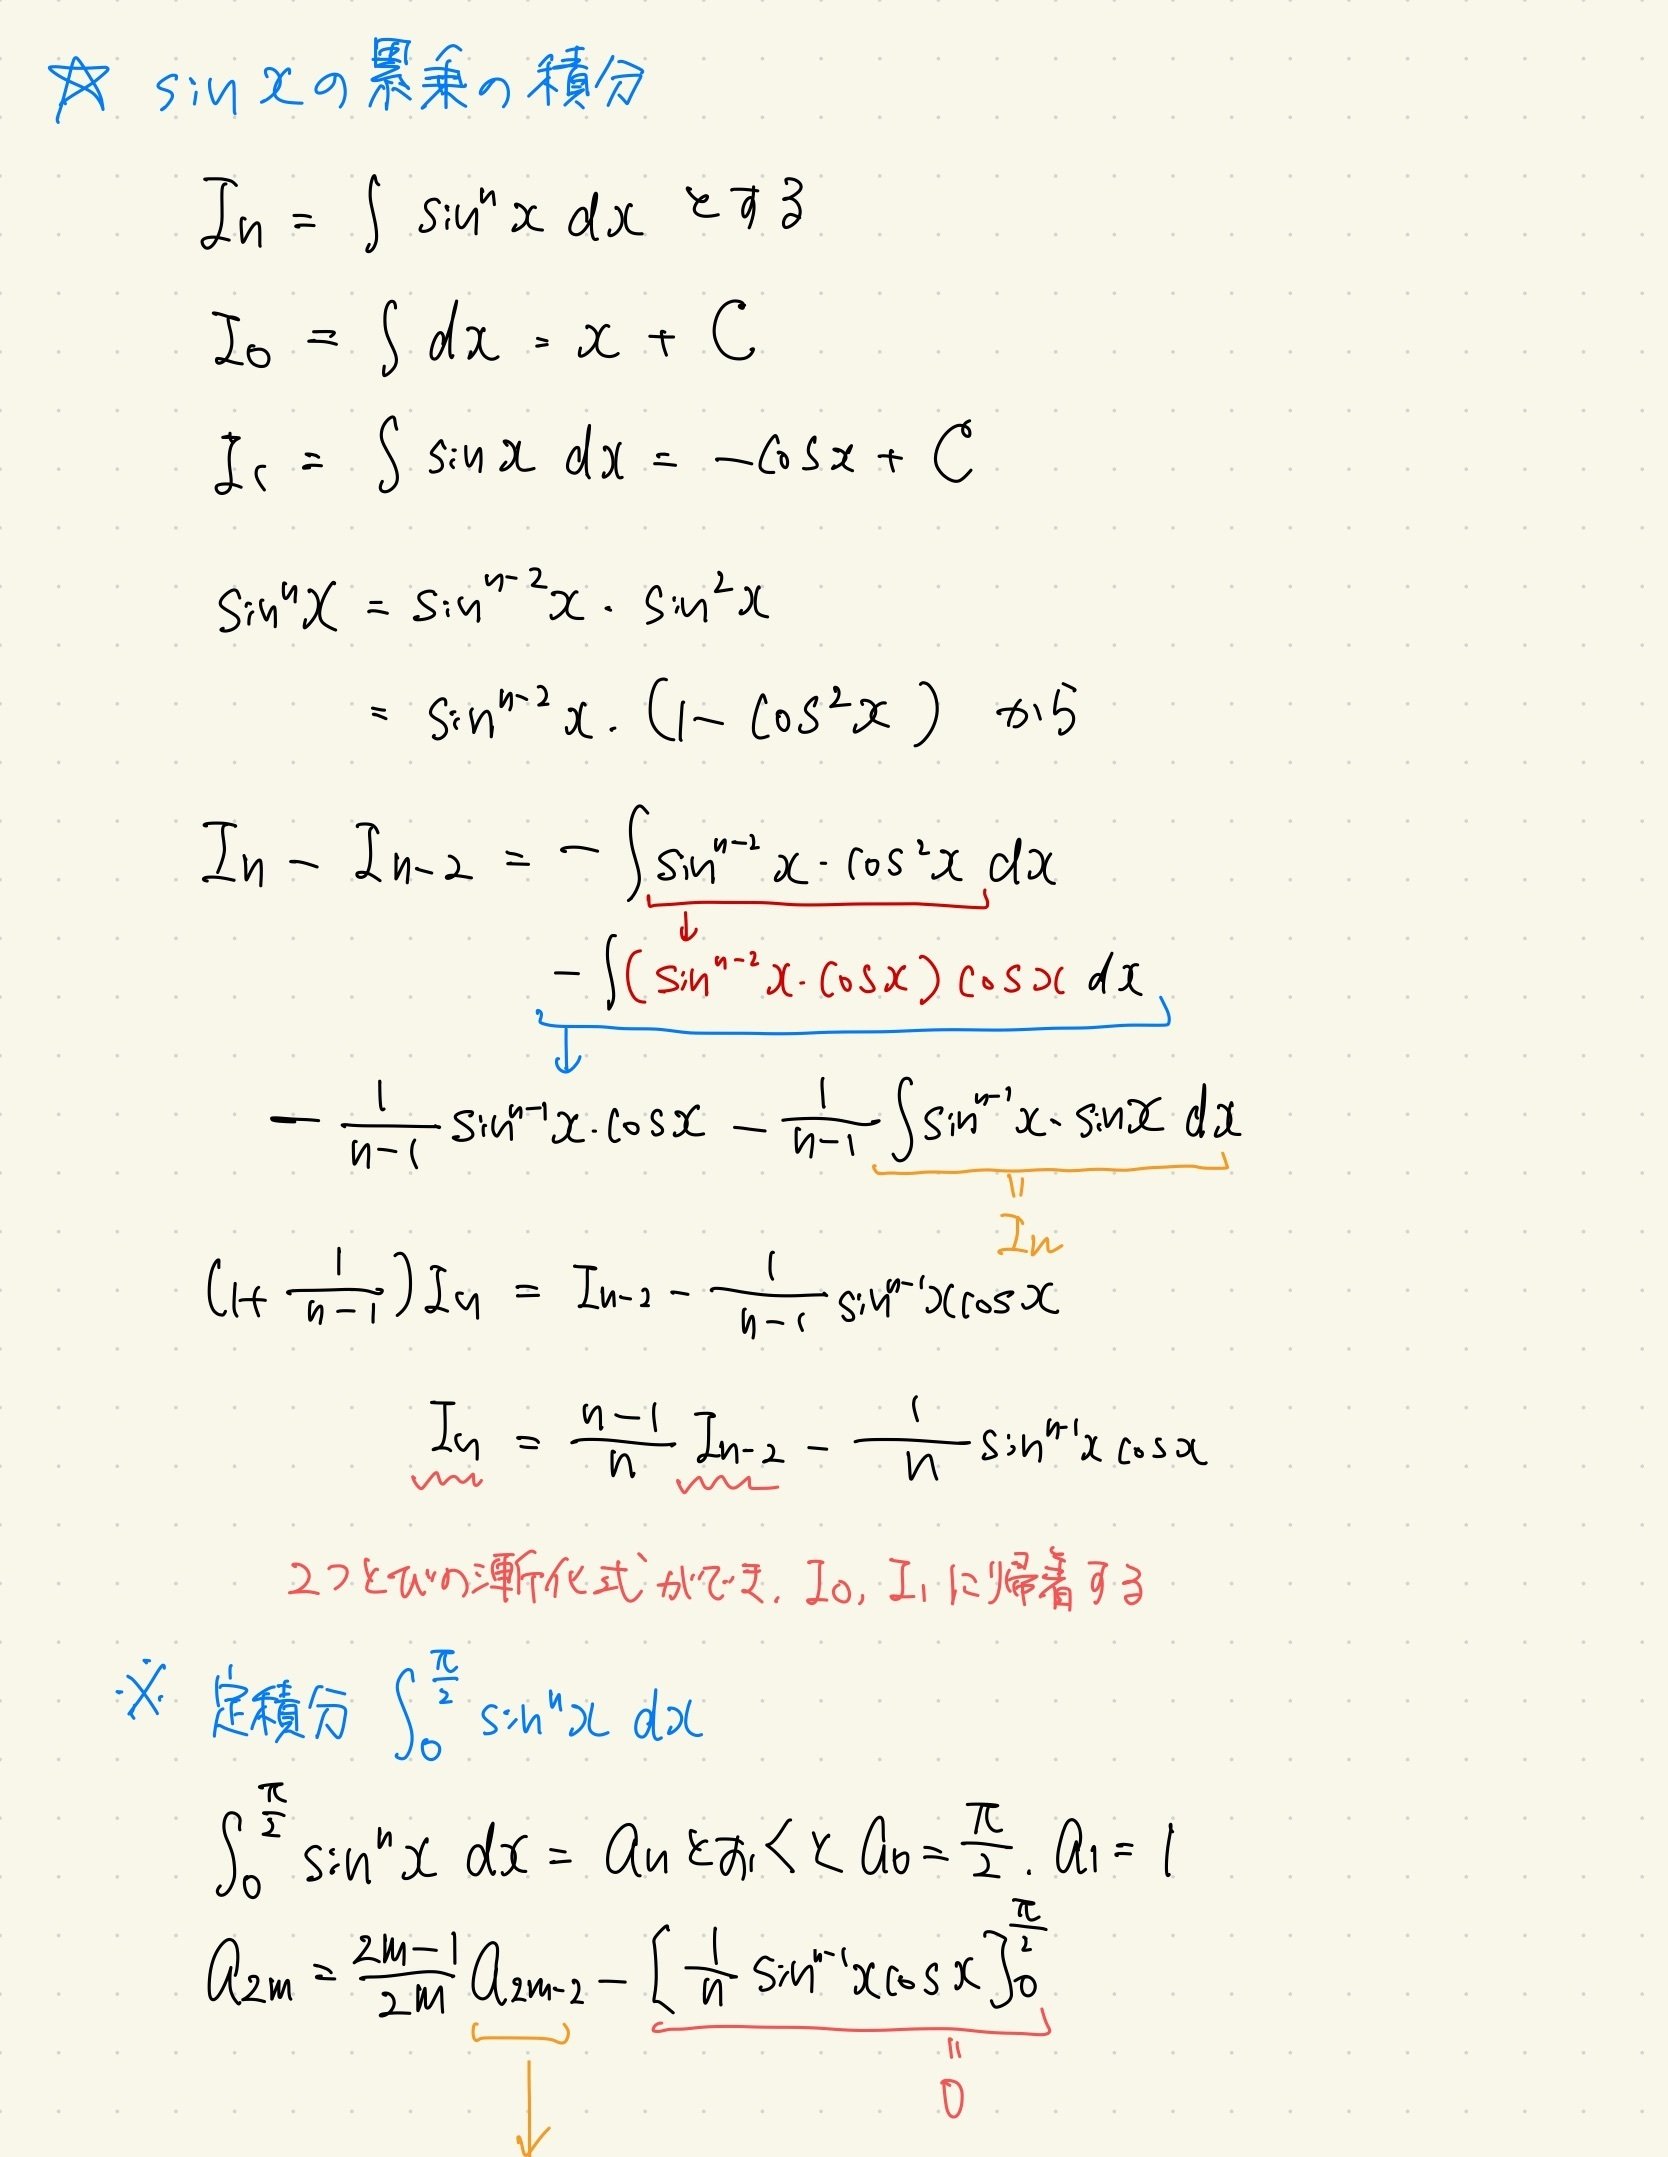 ☆ sin xの累乗の積分
Iₙ = ∫ sinⁿx dx とする
I₀ = ∫ dx = x + C
I₁ = ∫ sin x dx = -cos x + C
sinⁿx = sinⁿ⁻²x · sin²x
= sinⁿ⁻²x · (1 - cos²x) から
Iₙ - Iₙ₋₂ = -∫ sinⁿ⁻²x · cos²x dx
↓
-∫ (sinⁿ⁻²x · cos x) cos x dx
↓
- 1/(n-1) sinⁿ⁻¹x · cos x - 1/(n-1) ∫ sinⁿ⁻¹x · sin x dx
=
Iₙ
(1 + 1/(n-1)) Iₙ = Iₙ₋₂ - 1/(n-1) sinⁿ⁻¹x cos x
Iₙ = (n-1)/n Iₙ₋₂ - 1/n sinⁿ⁻¹x cos x
2つとびの漸化式ができ、I₀, I₁に帰着する
※ 定積分 ∫₀^(π/2) sinⁿx dx
∫₀^(π/2) sinⁿx dx = aₙとおくと a₀ = π/2, a₁ = 1
a₂ₘ = (2m-1)/2m a₂ₘ₋₂ - [1/n sinⁿ⁻¹x cos x]₀^(π/2)
=
0
↓